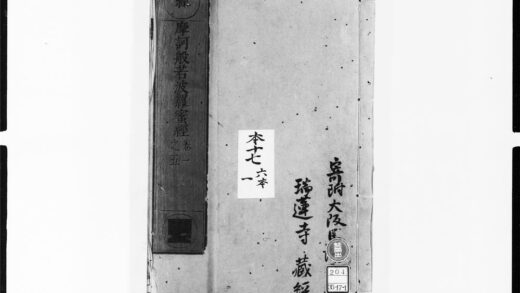 摩訶般若波羅蜜經 卷一之五
本十七
六本
一
寄附大阪
瑞蓮寺 藏經
204